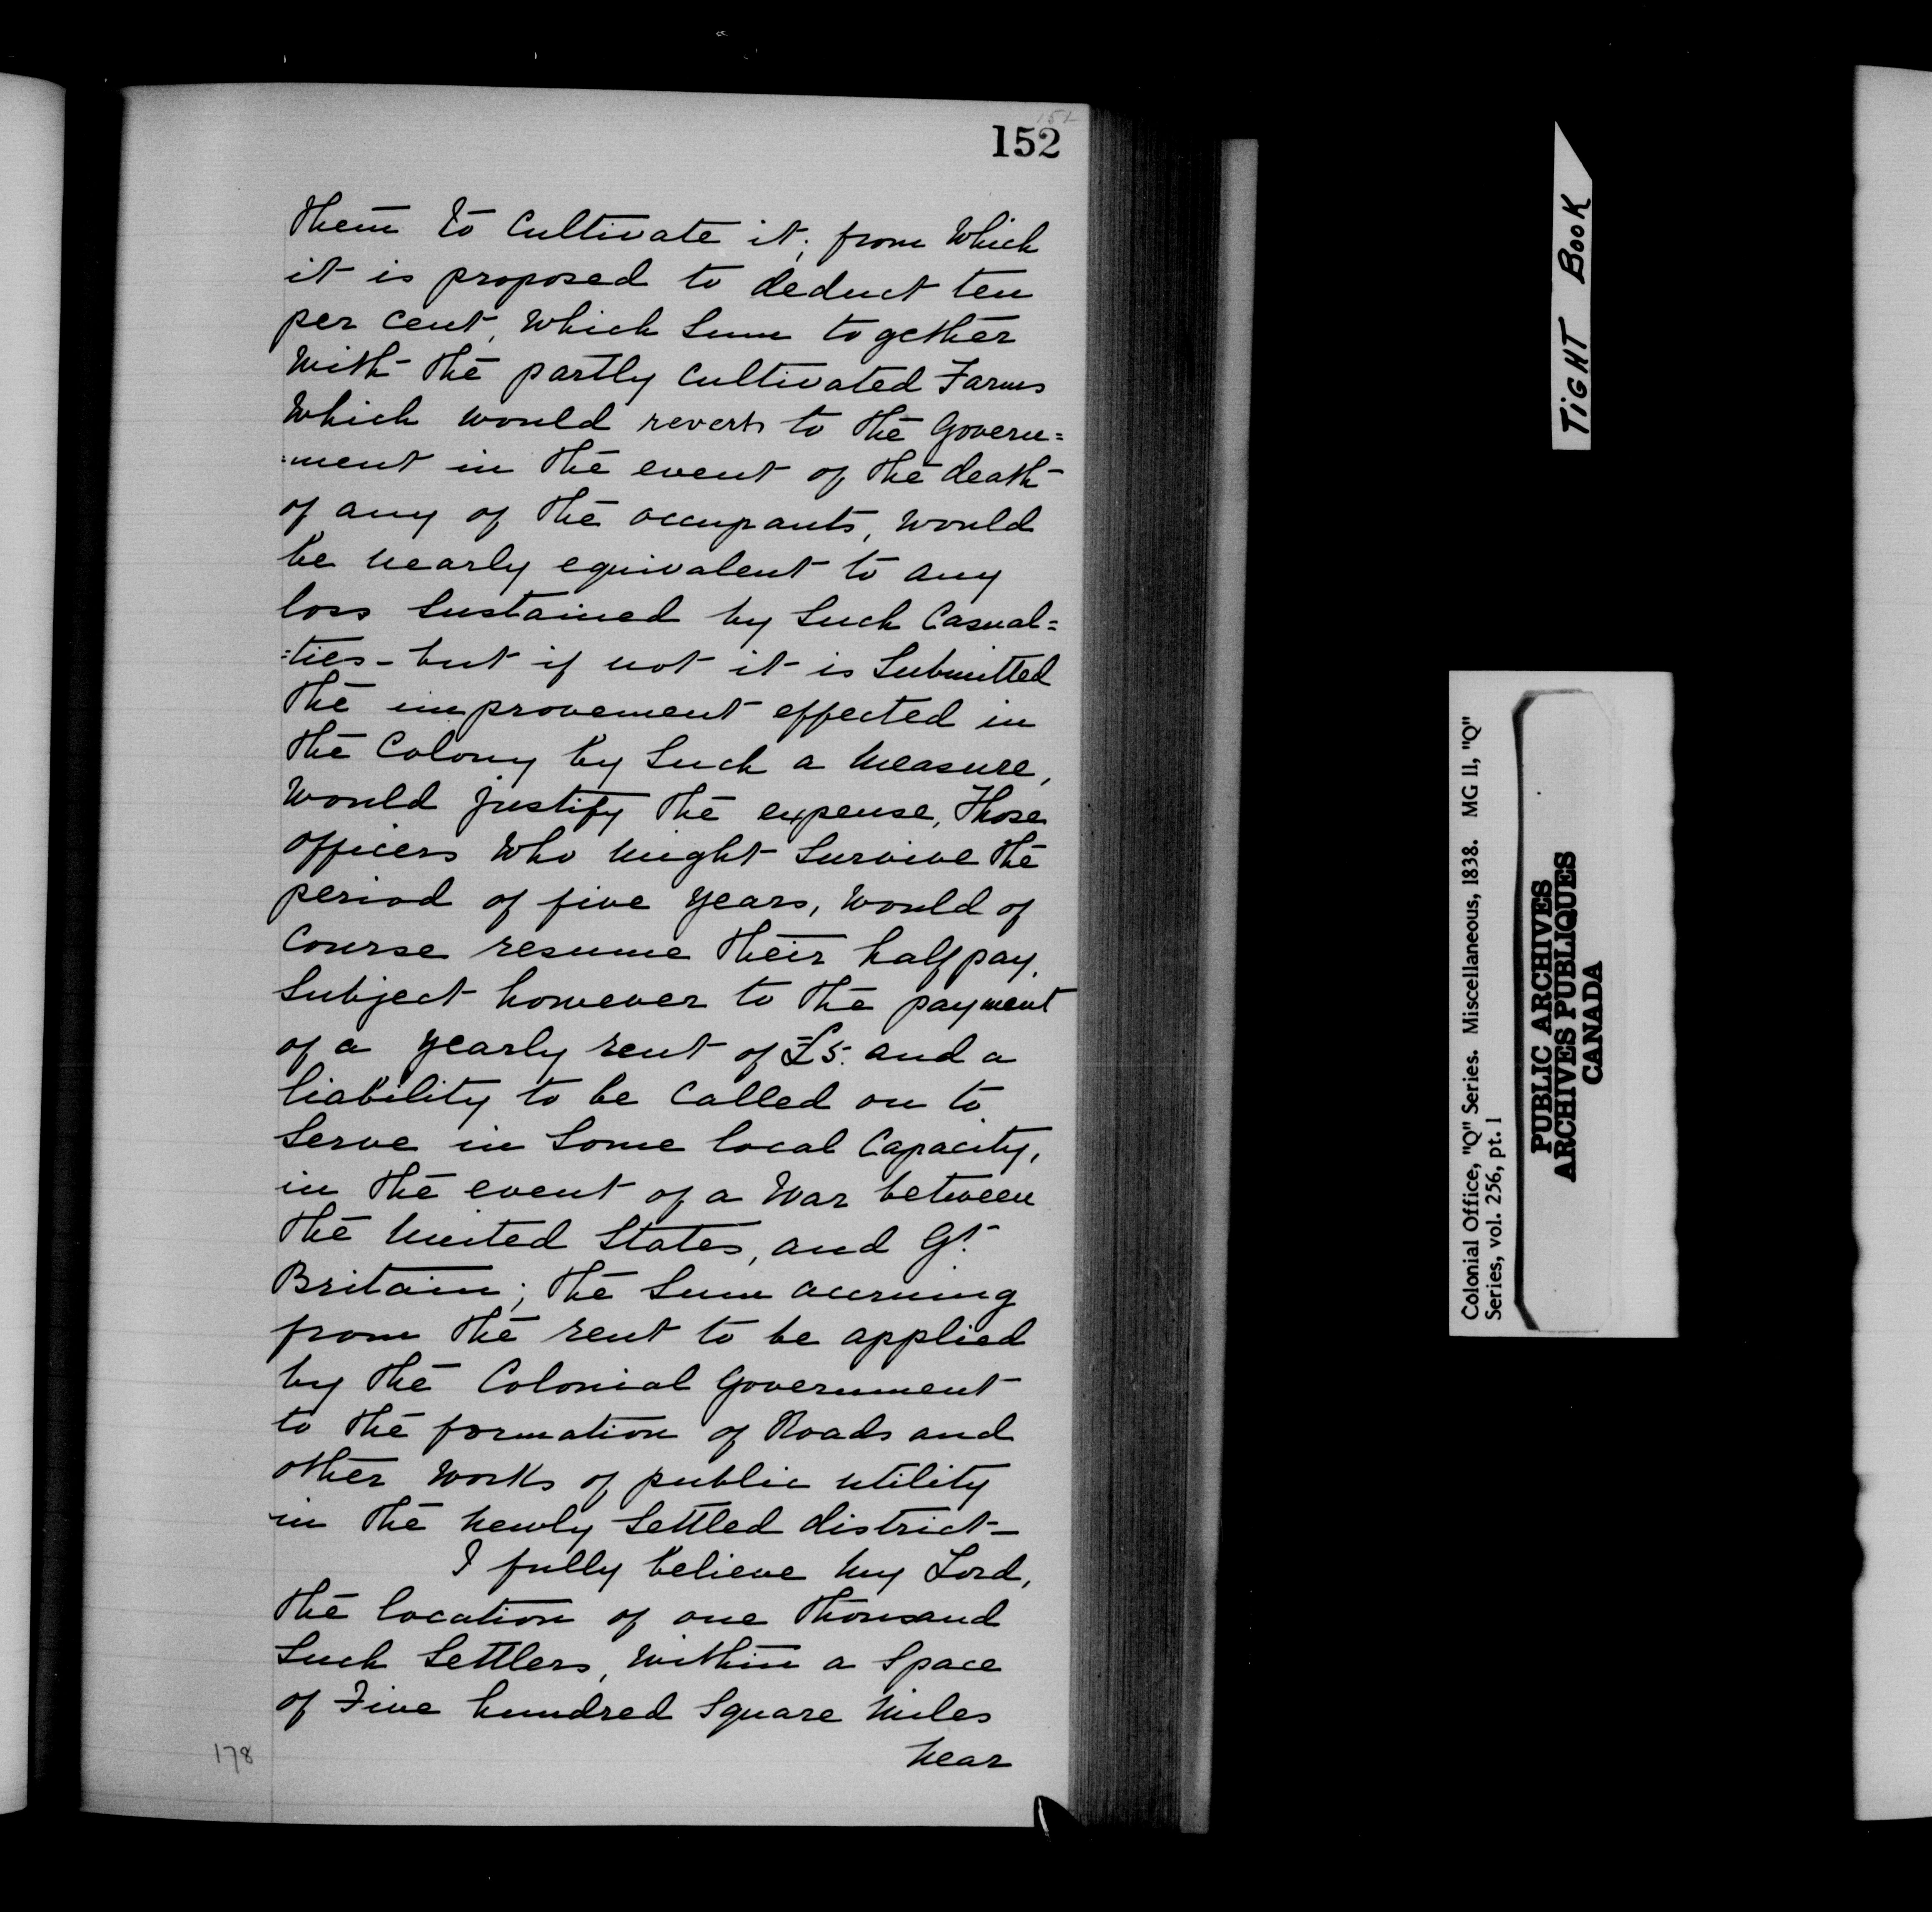 152
152
them to Cultivate it; from Which
it is proposed to deduct ten
per cent, Which Sum together
With the partly Cultivated Farms
Which would revert to the Govern=
=ment in the event of the death
of any of the occupants, Would
be nearly equivalent to any
loss Sustained by Such Casual=
=ties - but if not it is Submitted
the improvement effected in
the Colony by Such a Measure,
Would justify the expense, Those
Officers Who Might Survive the
period of five Years, Would of
Course resume their half pay,
Subject however to the payment
of a Yearly rent of £5. and a
liability to be Called on to
Serve in Some local Capacity,
in the event of a War between
the United States, and Gt.
Britain; the Sum accruing
from the rent to be applied
by the Colonial Government
to the formation of Roads and
other Works of public utility
in the Newly Settled district -
I fully believe My Lord,
the location of one thousand
Such Settlers, Within a Space
of Five hundred Square Miles
Near
178
TIGHT BOOK
Colonial Office, "Q" Series. Miscellaneous, 1838. MG 11, "Q"
Series, vol. 256, pt. 1
PUBLIC ARCHIVES
ARCHIVES PUBLIQUES
CANADA